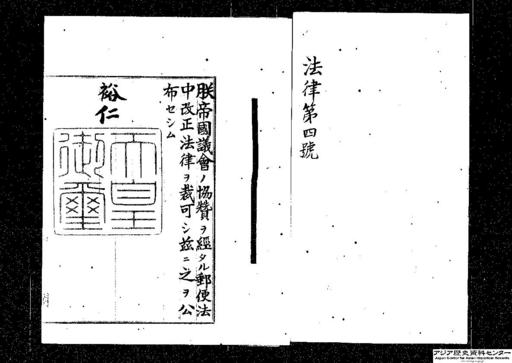 法律第四號
朕帝國議會ノ協贊ヲ經タル郵便法
中改正法律ヲ裁可シ茲ニ之ヲ公
布セシム
裕仁
天皇
御璽
アジア歴史資料センター
Japan Center for Asian Historical Records